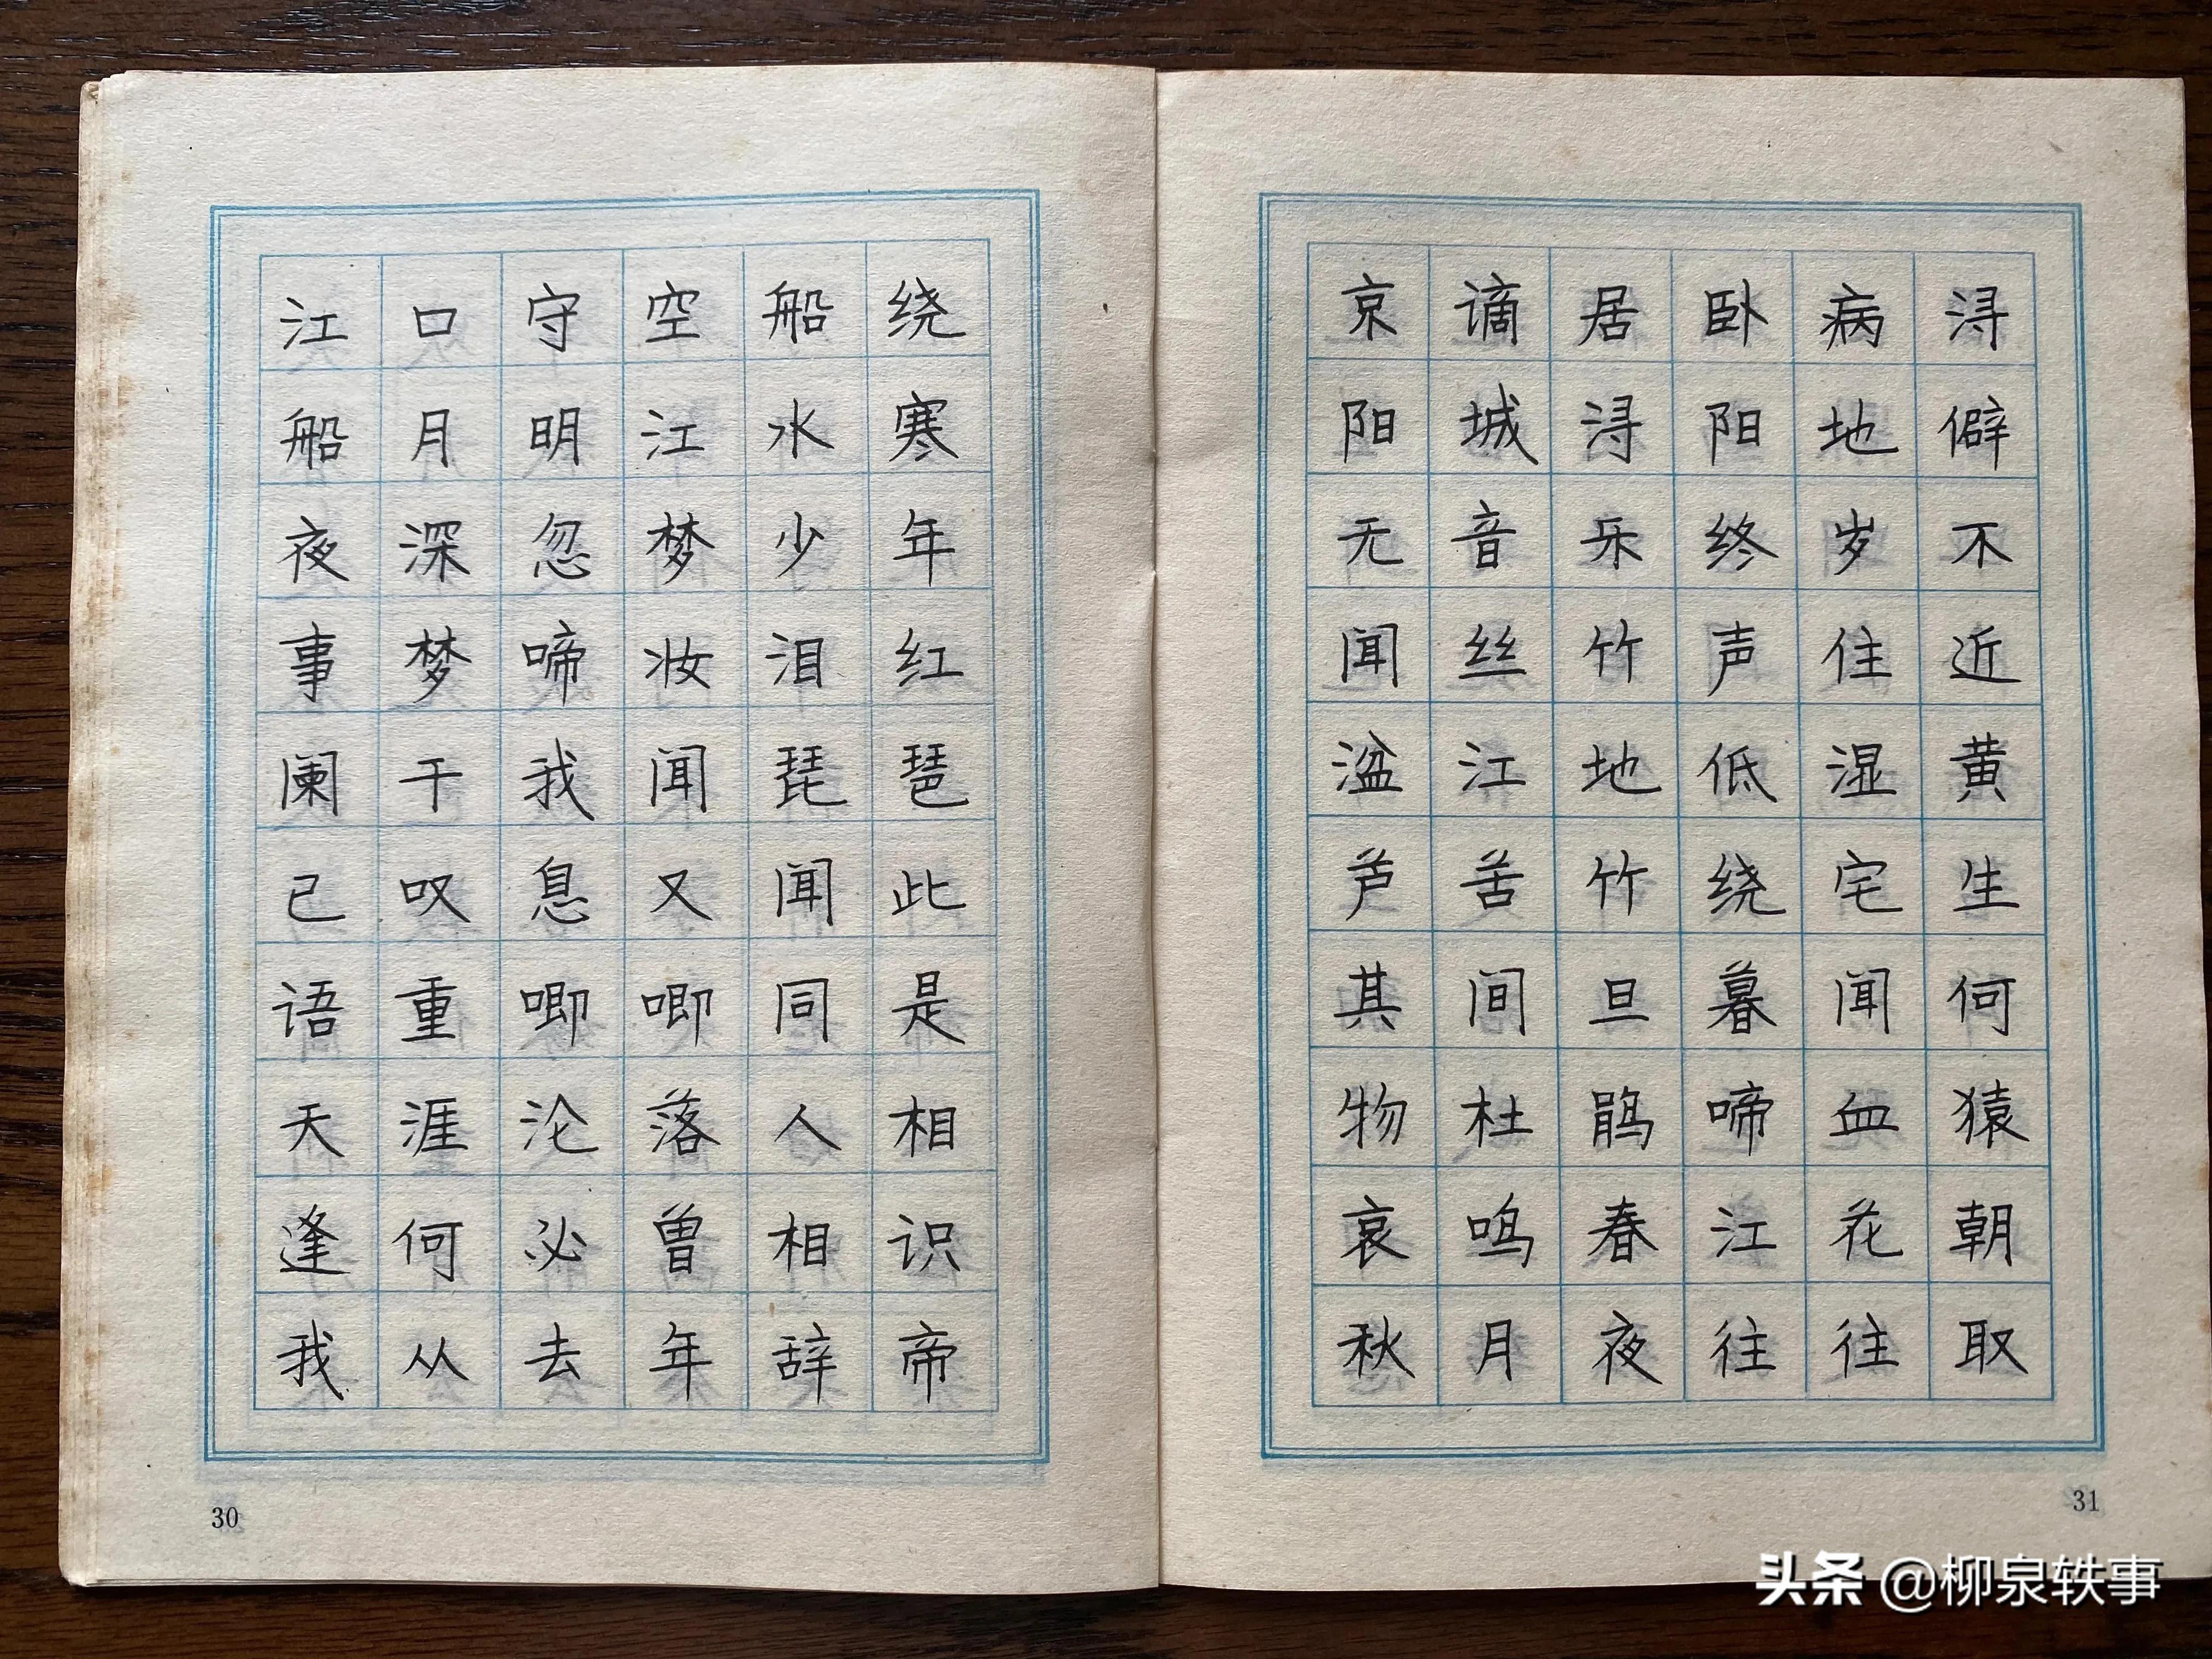 江口守空船绕
船月明江水寒
夜深忽梦少年
事梦啼妆泪红
阑干我闻琵琶
已叹息又闻此
语重唧唧同是
天涯沦落人相
逢何必曾相识
我从去年辞帝
30
京谪居卧病浔
阳城浔阳地僻
无音乐终岁不
闻丝竹声住近
湓江地低湿黄
芦苦竹绕宅生
其间旦暮闻何
物杜鹃啼血猿
哀鸣春江花朝
秋月夜往往取
31
头条 @柳泉轶事